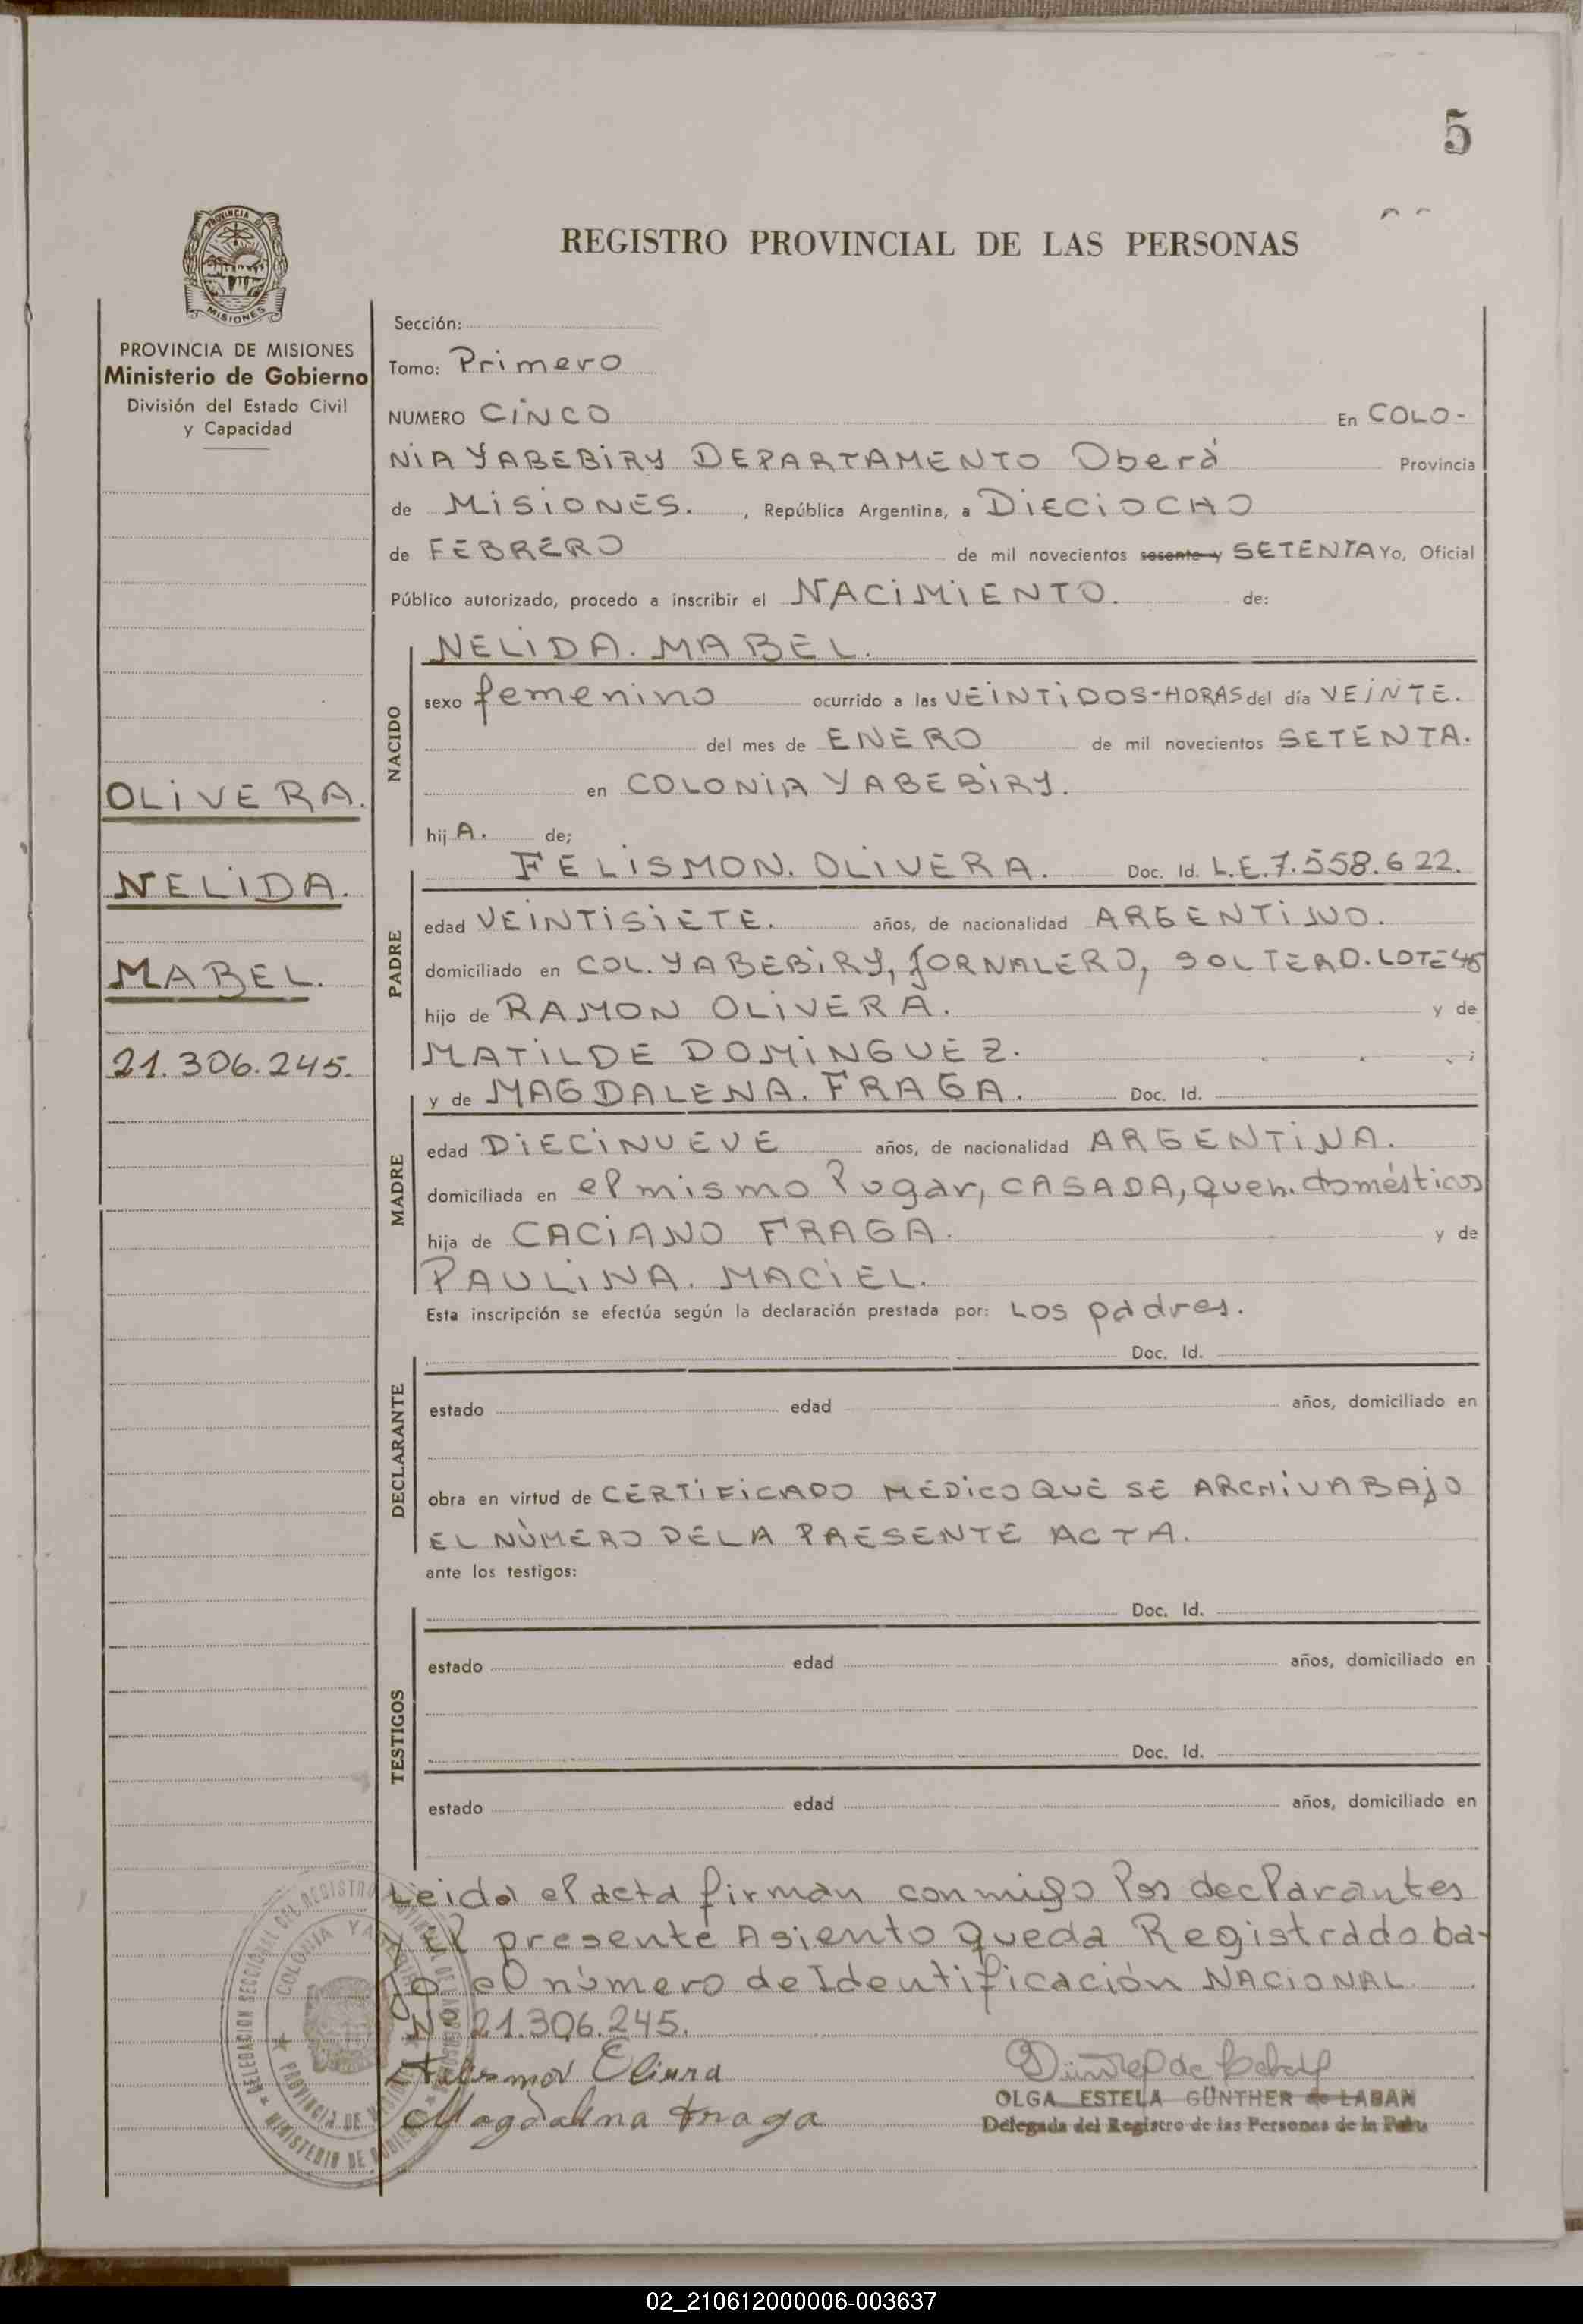 5
REGISTRO PROVINCIAL DE LAS PERSONAS
PROVINCIA DE
MISIONES
PROVINCIA DE MISIONES
Ministerio de Gobierno
División del Estado Civil
y Capacidad
OLIVERA.
NELIDA.
MABEL.
21.306.245.
Sección:
Tomo: Primero
NUMERO CINCO En COLO-
NIA YABEBIRY DEPARTAMENTO Oberá Provincia
de MISIONES. , República Argentina, a DIECIOCHO
de FEBRERO de mil novecientos sesenta y SETENTA Yo, Oficial
Público autorizado, procedo a inscribir el NACIMIENTO. de:
NACIDO
NELIDA. MABEL.
sexo femenino ocurrido a las VEINTIDOS-HORAS del día VEINTE.
del mes de ENERO de mil novecientos SETENTA.
en COLONIA YABEBIRY.
hij A. de;
PADRE
FELISMON. OLIVERA. Doc. Id. L.E.7.558.622.
edad VEINTISIETE. años, de nacionalidad ARGENTINO.
domiciliado en COL. YABEBIRY, JORNALERO, SOLTERO. LOTE 45
hijo de RAMON OLIVERA. y de
MATILDE DOMINGUEZ. ;
MADRE
y de MAGDALENA. FRAGA. Doc. Id.
edad DIECINUEVE años, de nacionalidad ARGENTINA.
domiciliada en el mismo lugar, CASADA, Queh. domésticos
hija de CACIANO FRAGA. y de
PAULINA. MACIEL.
Esta inscripción se efectúa según la declaración prestada por: Los padres.
DECLARANTE
Doc. Id.
estado edad años, domiciliado en
obra en virtud de CERTIFICADO MÉDICO QUE SE ARCHIVA BAJO
EL NÚMERO DE LA PRESENTE ACTA.
ante los testigos:
TESTIGOS
Doc. Id.
estado edad años, domiciliado en
Doc. Id.
estado edad años, domiciliado en
Leida el acta firman conmigo los declarantes
y El presente Asiento Queda Registrado ba-
jo el número de Identificación NACIONAL
Nº 21.306.245.
Magdalena Fraga
OLGA ESTELA GÜNTHER de LABAN
Delegada del Registro de las Personas de la Pcia
DELEGACION SECCIONAL DEL REGISTRO PROVINCIAL DE LAS PERSONAS
MINISTERIO DE GOBIERNO
COLONIA YABEBIRY
PROVINCIA DE MISIONES
02_210612000006-003637